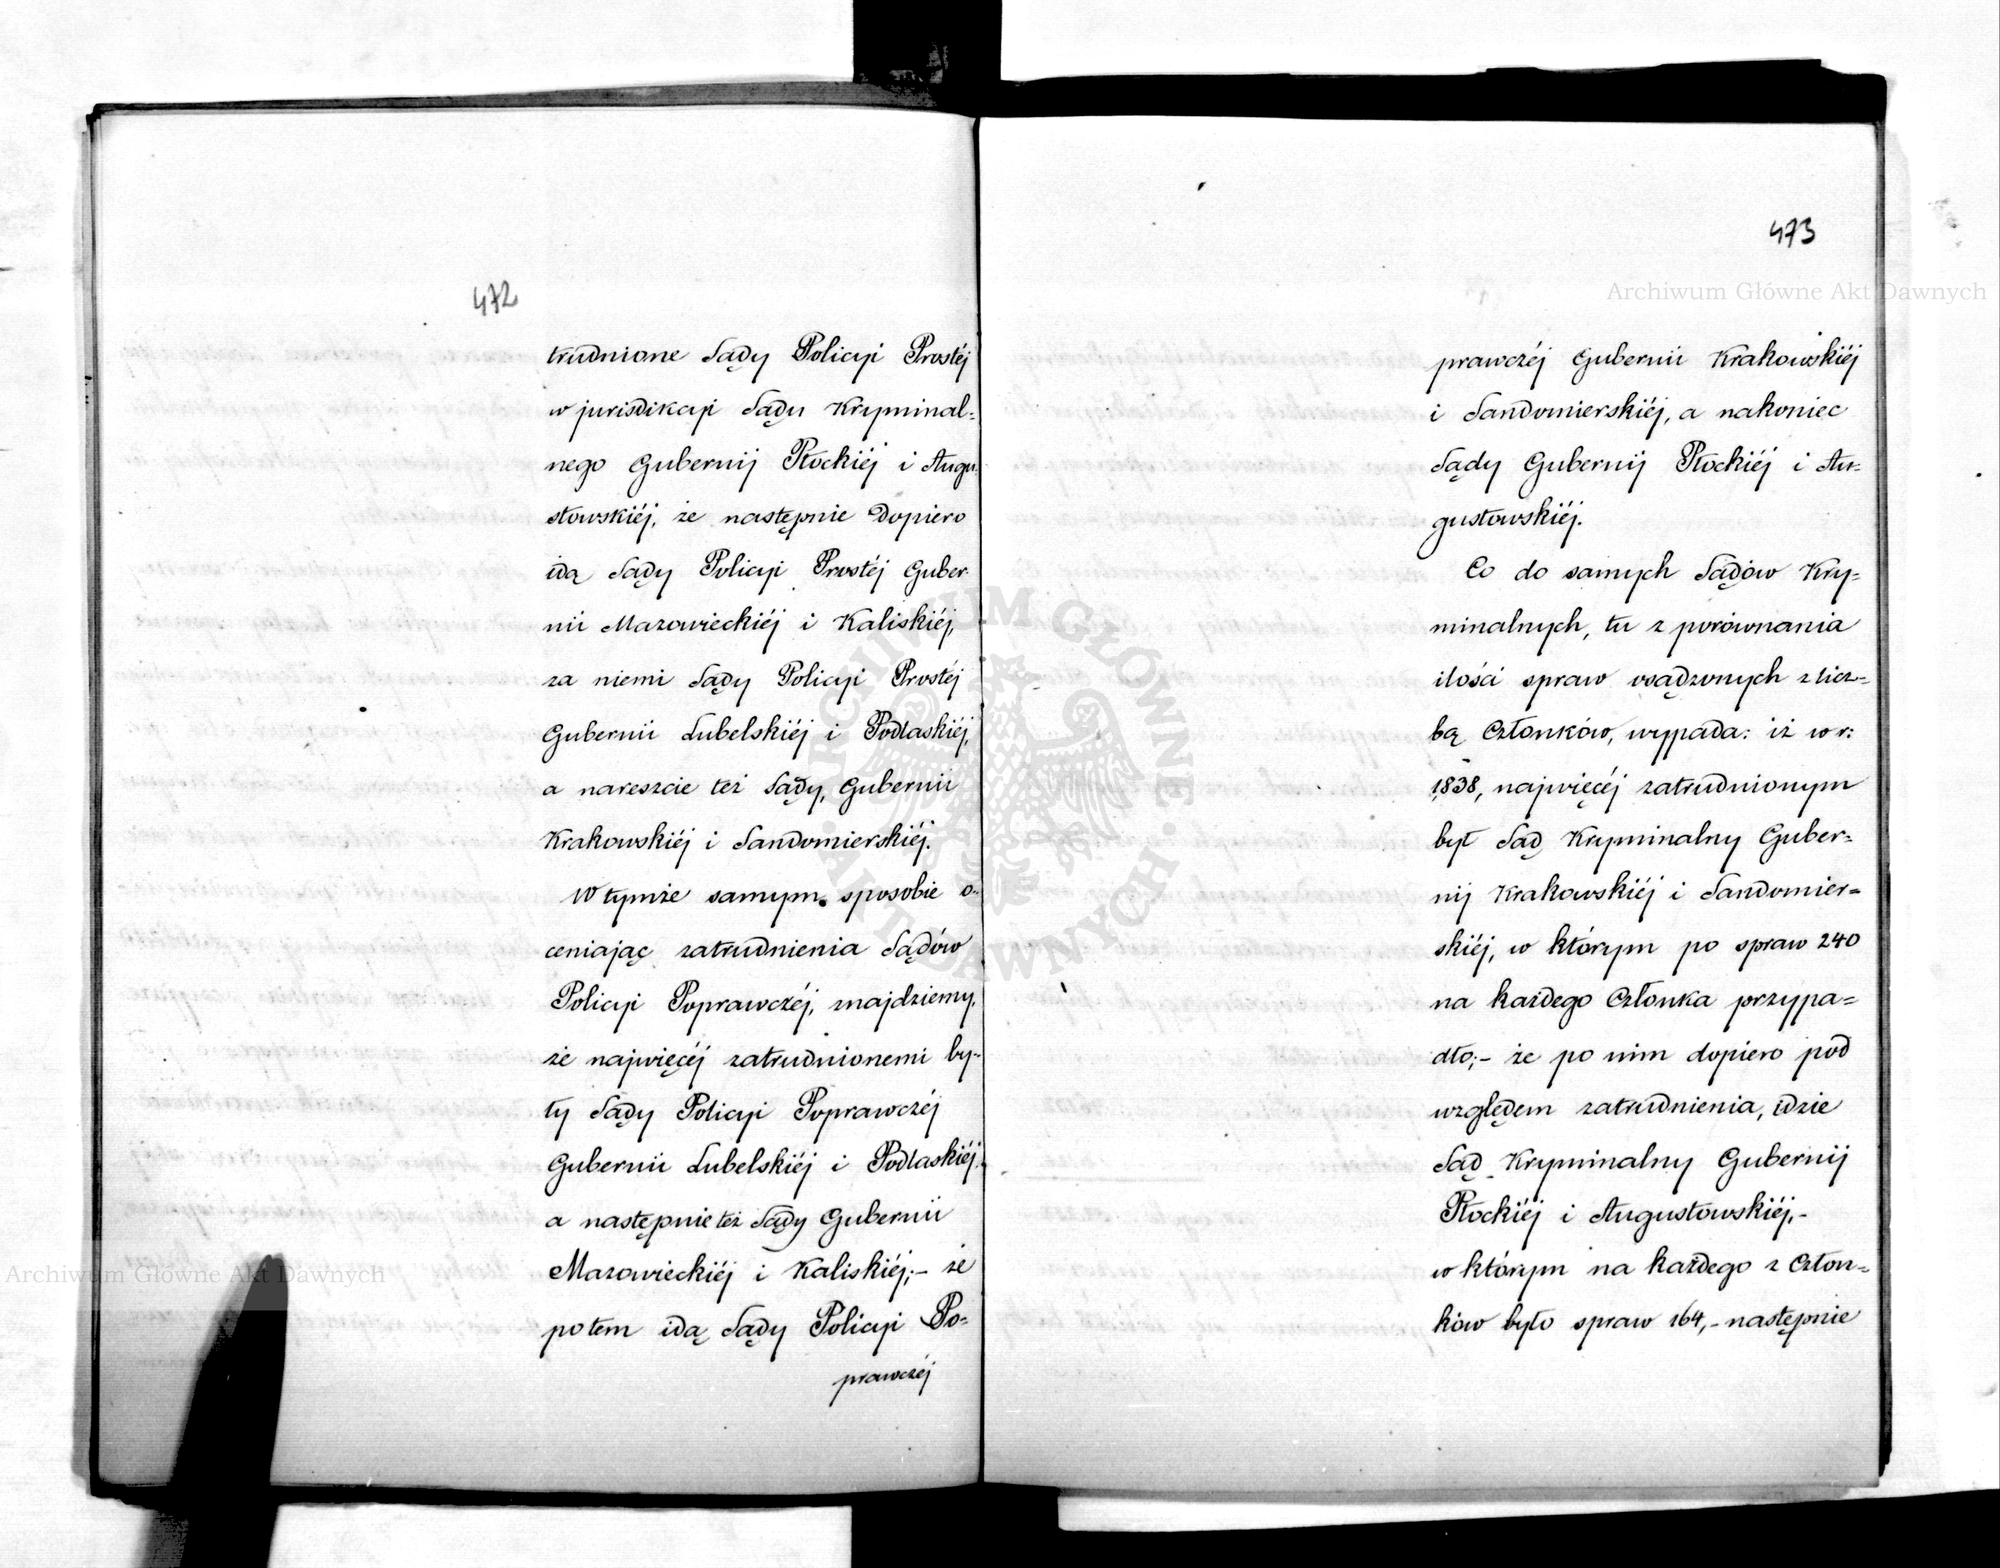 472
trudnione Sądy Policyi Prostéj
w jurisdikcyi Sądu Kryminal=
nego Gubernij Płockiéj i Augu=
stowskiéj, że następnie dopiero
idą Sądy Policyi Prostéj Guber
nii Mazowieckiéj i Kaliskiéj,
za niemi Sądy Policyi Prostéj
Gubernii Lubelskiéj i Podlaskiéj,
a nareszcie też Sądy, Gubernii
Krakowskiéj i Sandomierskiéj.
W tymże samym sposobie o=
ceniając zatrudnienia Sądów
Policyi Poprawczéj, znajdziemy,
że najwięcéj zatrudnionemi by=
ły Sądy Policyi Poprawczéj
Gubernii Lubelskiéj i Podlaskiéj,
a następnie też Sądy Gubernii
Mazowieckiéj i Kaliskiéj;- że
potem idą Sądy Policyi Po=
prawczéj
473
prawczéj Gubernii Krakowskiéj
i Sandomierskiéj, a nakoniec
Sądy Gubernij Płockiéj i Au=
gustowskiéj.
Co do samych Sądów Kry=
minalnych, tu z porównania
ilości spraw osądzonych z licz=
bą Członków, wypada: iż w r:
1838, najwięcéj zatrudnionym
był Sąd Kryminalny Guber=
nij Krakowskiéj i Sandomier=
skiéj, w którym po spraw 240
na każdego Członka przypa=
dło;- że po nim dopiero pod
względem zatrudnienia, idzie
Sąd Kryminalny Gubernij
Płockiéj i Augustowskiéj,-
w którym na każdego z Człon=
ków było spraw 164,- następnie
Archiwum Główne Akt Dawnych
Archiwum Główne Akt Dawnych
ARCHIWUM GŁÓWNE · AKT DAWNYCH ·